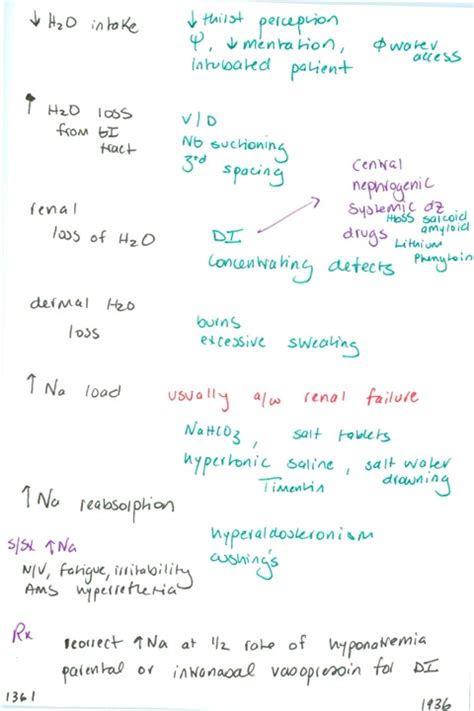 ↓ H2O intake
↓ thirst perception
Ψ, ↓ mentation, ϕ water access
intubated patient
↑ H2O loss from GI tract
V/D
NG suctioning
3rd spacing
renal loss of H2O
DI
concentrating defects
central
nephrogenic
systemic dz
HbSS sarcoid amyloid
drugs
Lithium
Phenytoin
dermal H2O loss
burns
excessive sweating
↑ Na load
usually a/w renal failure
NaHCO3, salt tablets
hypertonic saline, salt water drowning
Timentin
↑ Na reabsorption
hyperaldosteronism
cushing's
S/Sx ↑Na
N/V, fatigue, irritability
AMS hyperreflexia
Rx
↑Na at 1/2 rate of hyponatremia
parental or intranasal vasopressin for DI
1361
1936